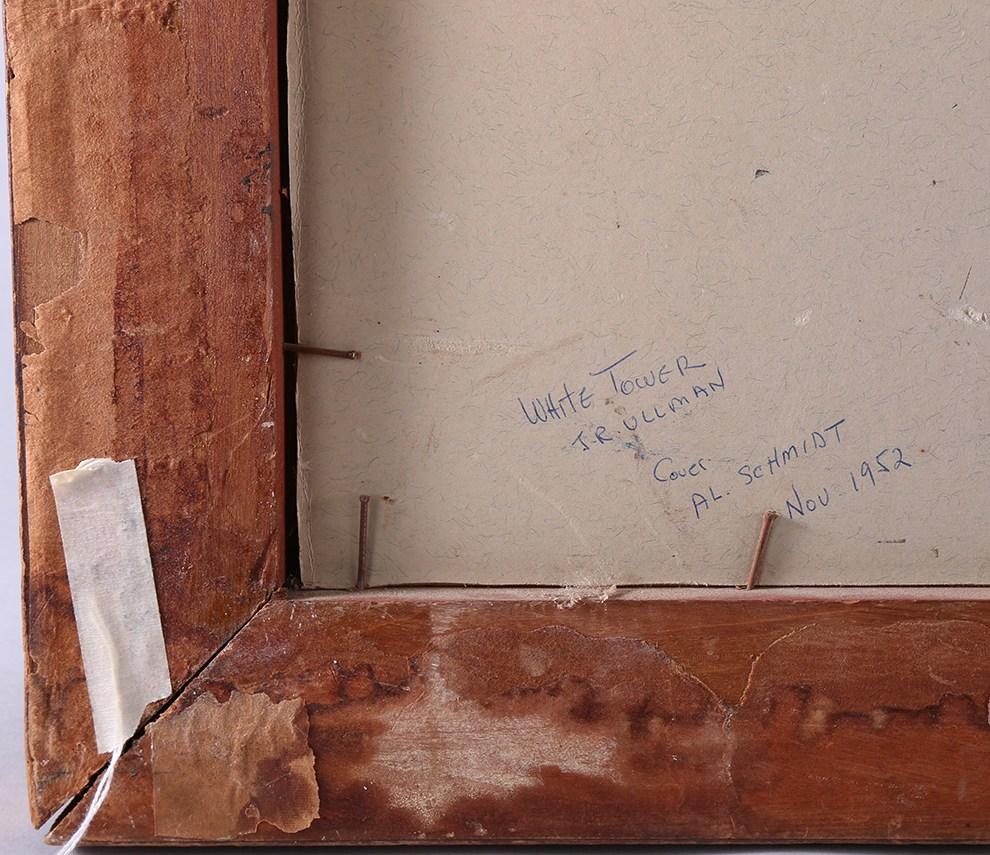 WHITE TOWER
J.R. ULLMAN
Cover
AL. SCHMIDT
NOV 1952